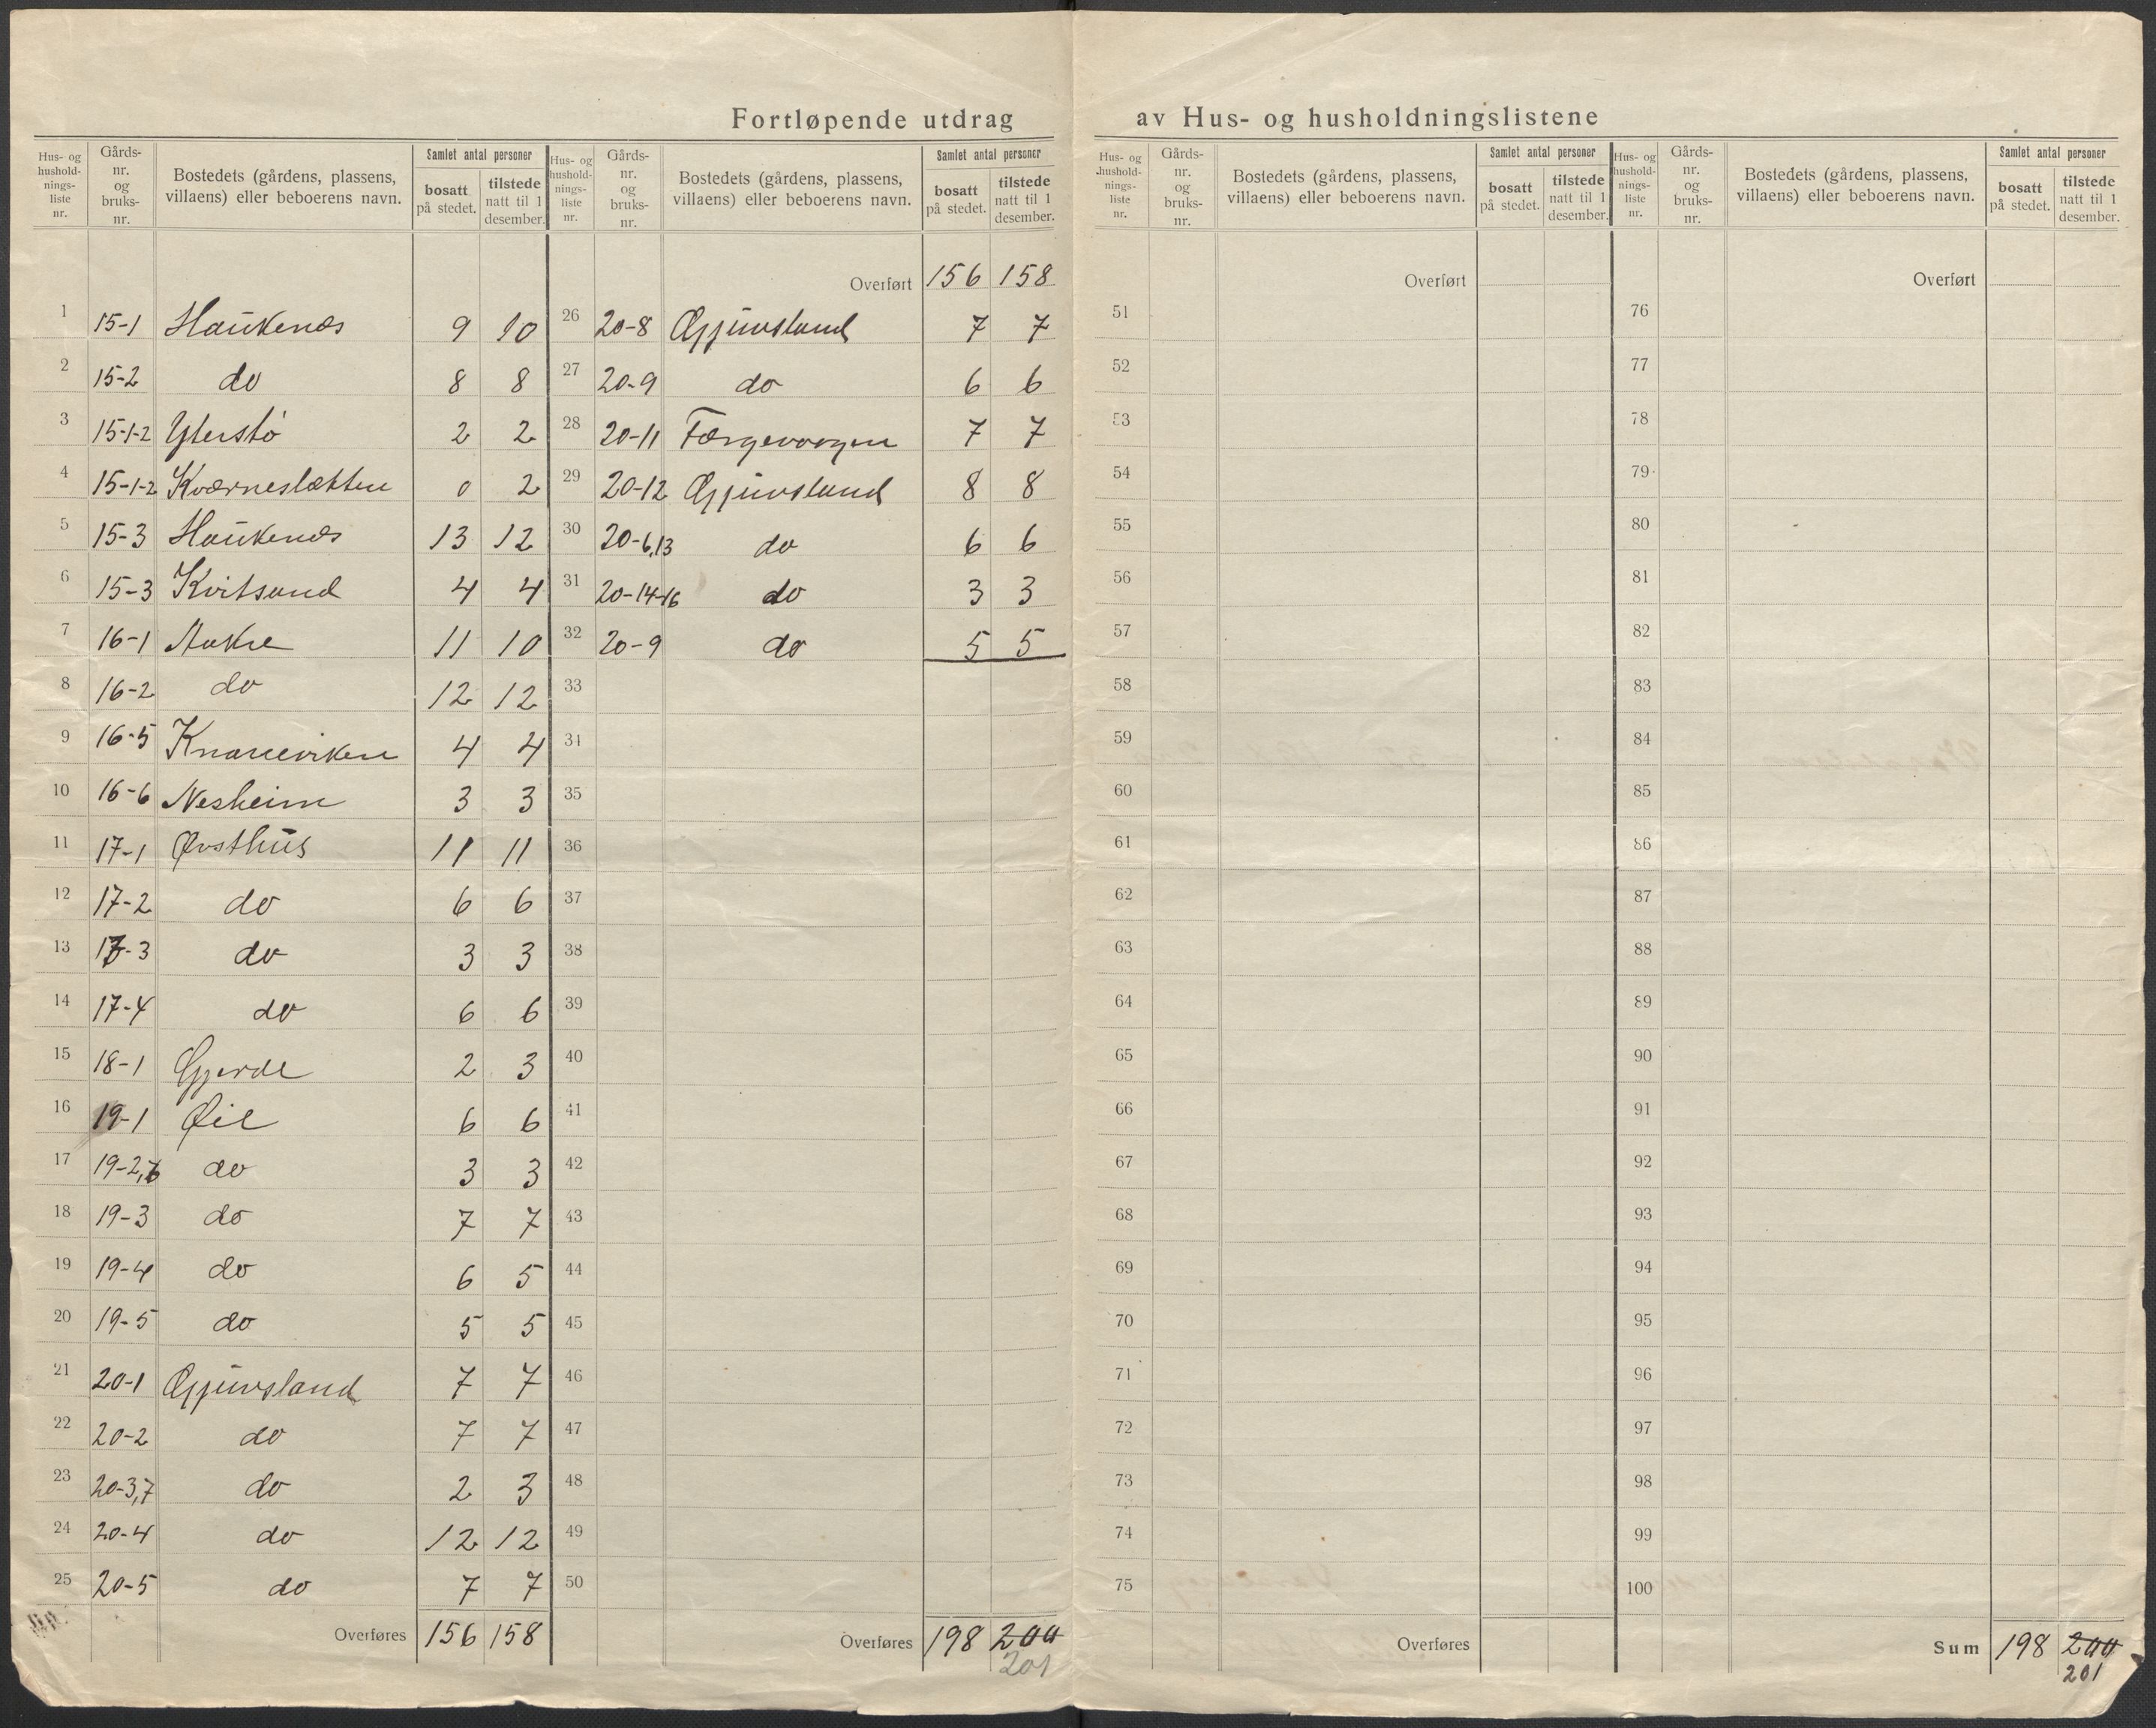 Fortløpende utdrag av Hus- og husholdningslistene
Hus- og hushold-nings-liste nr. Gårds-nr. og bruks-nr. Bostedets (gårdens, plassens, villaens) eller beboerens navn. Samlet antal personer bosatt på stedet. tilstede natt til 1 desember.
1 15-1 Haukenæs 9 10
2 15-2 do 8 8
3 15-1-2 Yterstø 2 2
4 15-1-2 Kværneslætten 0 2
5 15-3 Haukenæs 13 12
6 15-3 Kvitsand 4 4
7 16-1 Aakre 11 10
8 16-2 do 12 12
9 16-5 Knarreviken 4 4
10 16-6 Nesheim 3 3
11 17-1 Øvsthus 11 11
12 17-2 do 6 6
13 17-3 do 3 3
14 17-4 do 6 6
15 18-1 Gjerde 2 3
16 19-1 Øie 6 6
17 19-2,6 do 3 3
18 19-3 do 7 7
19 19-4 do 6 5
20 19-5 do 5 5
21 20-1 Gjuvsland 7 7
22 20-2 do 7 7
23 20-3,7 do 2 3
24 20-4 do 12 12
25 20-5 do 7 7
Overføres 156 158
Hus- og hushold-nings-liste nr. Gårds-nr. og bruks-nr. Bostedets (gårdens, plassens, villaens) eller beboerens navn. Samlet antal personer bosatt på stedet. tilstede natt til 1 desember.
Overført 156 158
26 20-8 Gjuvsland 7 7
27 20-9 do 6 6
28 20-11 Færgevaagen 7 7
29 20-12 Gjuvsland 8 8
30 20-6,13 do 6 6
31 20-14-16 do 3 3
32 20-9 do 5 5
33
34
35
36
37
38
39
40
41
42
43
44
45
46
47
48
49
50
Overføres 198 200
201
Hus- og hushold-nings-liste nr. Gårds-nr. og bruks-nr. Bostedets (gårdens, plassens, villaens) eller beboerens navn. Samlet antal personer bosatt på stedet. tilstede natt til 1 desember.
Overført
51
52
53
54
55
56
57
58
59
60
61
62
63
64
65
66
67
68
69
70
71
72
73
74
75
Overføres
Hus- og hushold-nings-liste nr. Gårds-nr. og bruks-nr. Bostedets (gårdens, plassens, villaens) eller beboerens navn. Samlet antal personer bosatt på stedet. tilstede natt til 1 desember.
Overført
76
77
78
79
80
81
82
83
84
85
86
87
88
89
90
91
92
93
94
95
96
97
98
99
100
Sum 198 200
201